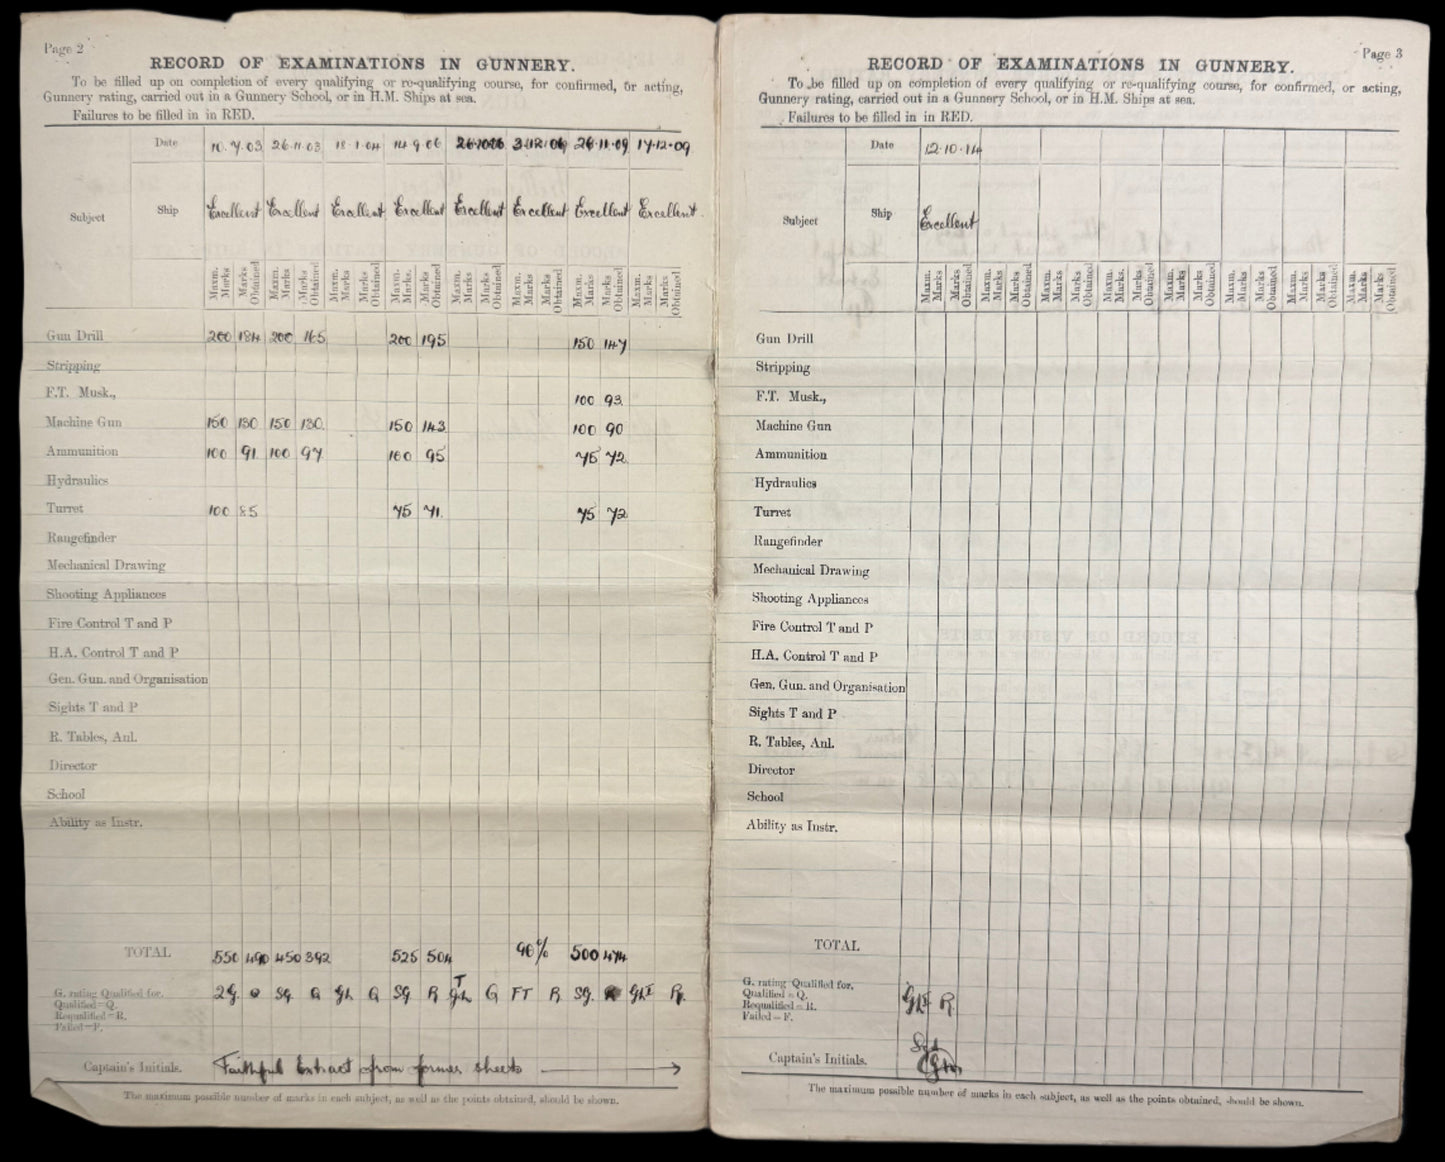 Page 2
RECORD OF EXAMINATIONS IN GUNNERY.
To be filled up on completion of every qualifying or re-qualifying course, for confirmed, or acting,
Gunnery rating, carried out in a Gunnery School, or in H.M. Ships at sea.
Failures to be filled in in RED.
Date 10.7.03 26.11.03 18.1.04 14.9.06 26.10.06 3.12.06 26.11.09 17.12.09
Subject Ship Excellent Excellent Excellent Excellent Excellent Excellent Excellent Excellent
Maxm. Marks Marks Obtained Maxm. Marks Marks Obtained Maxm. Marks Marks Obtained Maxm. Marks Marks Obtained Maxm. Marks Marks Obtained Maxm. Marks Marks Obtained Maxm. Marks Marks Obtained Maxm. Marks Marks Obtained
Gun Drill 200 184 200 165 200 195 150 147
Stripping
F.T. Musk., 100 93
Machine Gun 150 130 150 130 150 143 100 90
Ammunition 100 91 100 97 100 95 75 72
Hydraulics
Turret 100 85 75 71 75 72
Rangefinder
Mechanical Drawing
Shooting Appliances
Fire Control T and P
H.A. Control T and P
Gen. Gun. and Organisation
Sights T and P
R. Tables, Anl.
Director
School
Ability as Instr.
TOTAL 550 490 450 392 525 504 90% 500 474
G. rating Qualified for. 2G. Q SG Q GL Q SG R GLT Q FT R SG. GLI R.
Qualified=Q.
Requalified=R.
Failed=F.
Captain's Initials. Faithful Extract from former sheets
The maximum possible number of marks in each subject, as well as the points obtained, should be shown.
Page 3
RECORD OF EXAMINATIONS IN GUNNERY.
To be filled up on completion of every qualifying or re-qualifying course, for confirmed, or acting,
Gunnery rating, carried out in a Gunnery School, or in H.M. Ships at sea.
Failures to be filled in in RED.
Date 12.10.14
Subject Ship Excellent
Maxm. Marks Marks Obtained Maxm. Marks Marks Obtained Maxm. Marks Marks Obtained Maxm. Marks. Marks Obtained Maxm. Marks Marks Obtained Maxm. Marks Marks Obtained Maxm. Marks Marks Obtained Maxm. Marks Marks Obtained
Gun Drill
Stripping
F.T. Musk.,
Machine Gun
Ammunition
Hydraulics
Turret
Rangefinder
Mechanical Drawing
Shooting Appliances
Fire Control T and P
H.A. Control T and P
Gen. Gun. and Organisation
Sights T and P
R. Tables, Anl.
Director
School
Ability as Instr.
TOTAL
G. rating Qualified for.
Qualified=Q. GLI R.
Requalified=R.
Failed=F.
Captain's Initials.
The maximum possible number of marks in each subject, as well as the points obtained, should be shown.